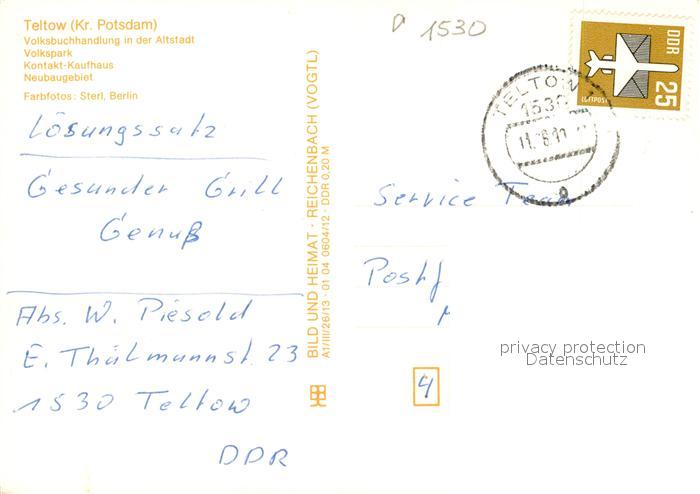 Teltow (Kr. Potsdam)
Volksbuchhandlung in der Altstadt
Volkspark
Kontakt-Kaufhaus
Neubaugebiet
Farbfotos: Sterl, Berlin
Lösungssatz
Gesunder Grill
Genuß
Abs. W. Piesold
E. Thälmannst. 23
1530 Teltow
DDR
BILD UND HEIMAT · REICHENBACH (VOGTL)
A1/III/26/13 · 01 04 0604/12 · DDR 0,20 M
1530
DDR
25
LUFTPOST
TELTOW 1
1530
a
Service Team
Postf
4
privacy protection
Datenschutz